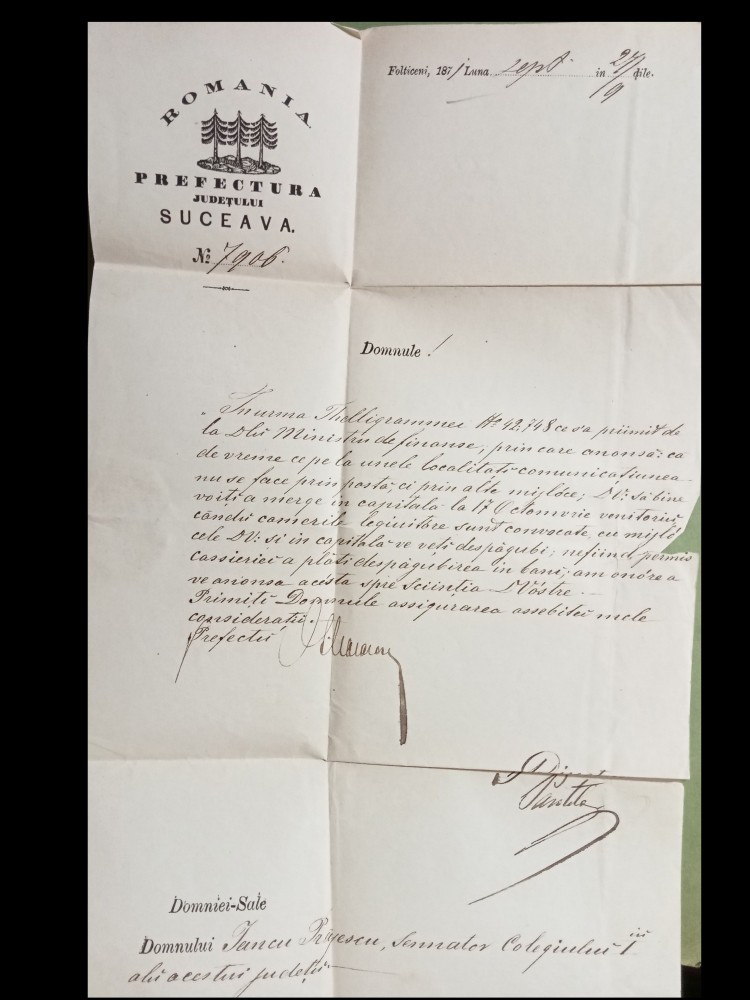 ROMANIA.
PREFECTURA
JUDEȚULUI
SUCEAVA.
№ 7906.
Folticeni, 1871 Luna sept in 27/9 dile.
Domnule!
„ În urma Thelligrammei No 42.748 ce s'a priimit de
la Dlu Ministru de finanse, prin care anonsă: ca
de vreme ce pe la unele localitati comunicațiunea
nu se face prin poștă, ci prin alte mijlóce, DV: să bine
voiți a merge in capitala la 17 Octomvrie venitoriu
cândŭ camerile legiuitóre sunt convocate, cu mijló
cele DV: și in capitală ve veti despăgubi; nefiind permis
cassieriei a plăti despăgubirea in bani; am onóre a
ve anonsa acésta spre sciintia DVóstre.—
Primiți Domnule assigurarea assebitei mele
consideratii.
Prefectŭ
Domniei-Sale
Domnului Iancu, Sennator Colegiului I iu
alŭ acestui județŭ.—